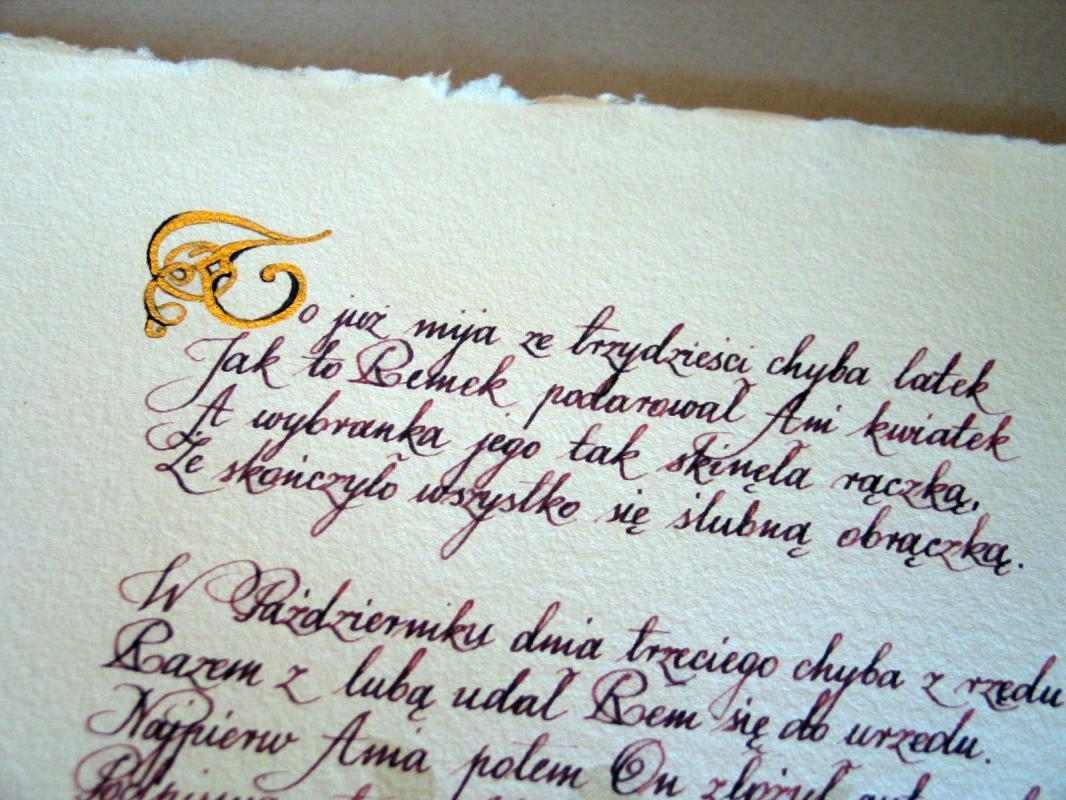 To już mija ze trzydzieści chyba latek
Jak to Remek podarował Ani kwiatek
A wybranka jego tak skinęła rączką,
Że skończyło wszystko się ślubną obrączką.
W Październiku dnia trzeciego chyba z rzędu
Razem z lubą udał Rem się do urzędu.
Najpierw Ania potem On złożył